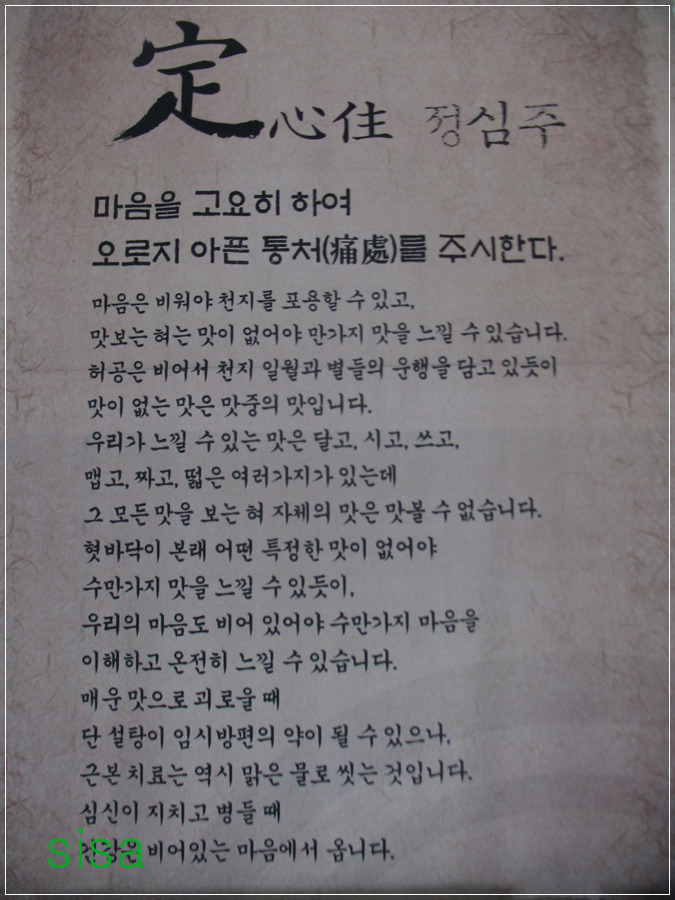 定心住 정심주
마음을 고요히 하여
오로지 아픈 통처(痛處)를 주시한다.
마음은 비워야 천지를 포용할 수 있고,
맛보는 혀는 맛이 없어야 만가지 맛을 느낄 수 있습니다.
허공은 비어서 천지 일월과 별들의 운행을 담고 있듯이
맛이 없는 맛은 맛중의 맛입니다.
우리가 느낄 수 있는 맛은 달고, 시고, 쓰고,
맵고, 짜고, 떫은 여러가지가 있는데
그 모든 맛을 보는 혀 자체의 맛은 맛볼 수 없습니다.
혓바닥이 본래 어떤 특정한 맛이 없어야
수만가지 맛을 느낄 수 있듯이,
우리의 마음도 비어 있어야 수만가지 마음을
이해하고 온전히 느낄 수 있습니다.
매운 맛으로 괴로울 때
단 설탕이 임시방편의 약이 될 수 있으나,
근본 치료는 역시 맑은 물로 씻는 것입니다.
심신이 지치고 병들 때
비어있는 마음에서 옵니다.
sisa